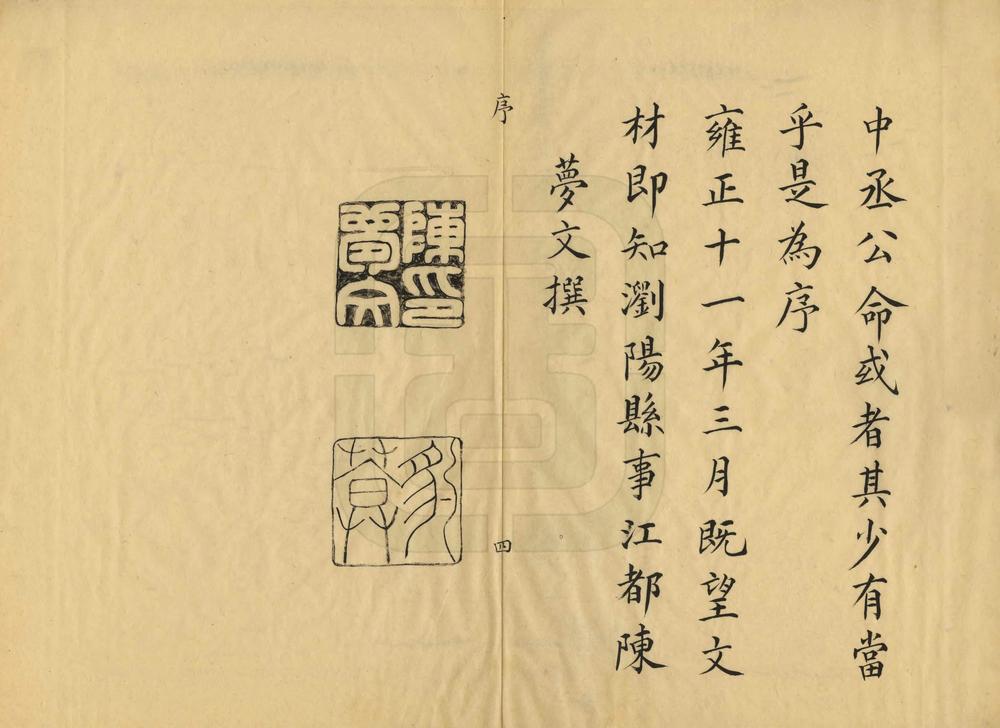 中丞公命或者其少有當
乎是為序
雍正十一年三月既望文
材即知瀏陽縣事江都陳
夢文撰
序
四
陳印夢文